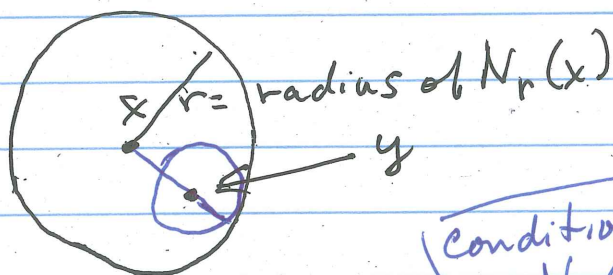 x r = radius of N_r(x)
y
condition